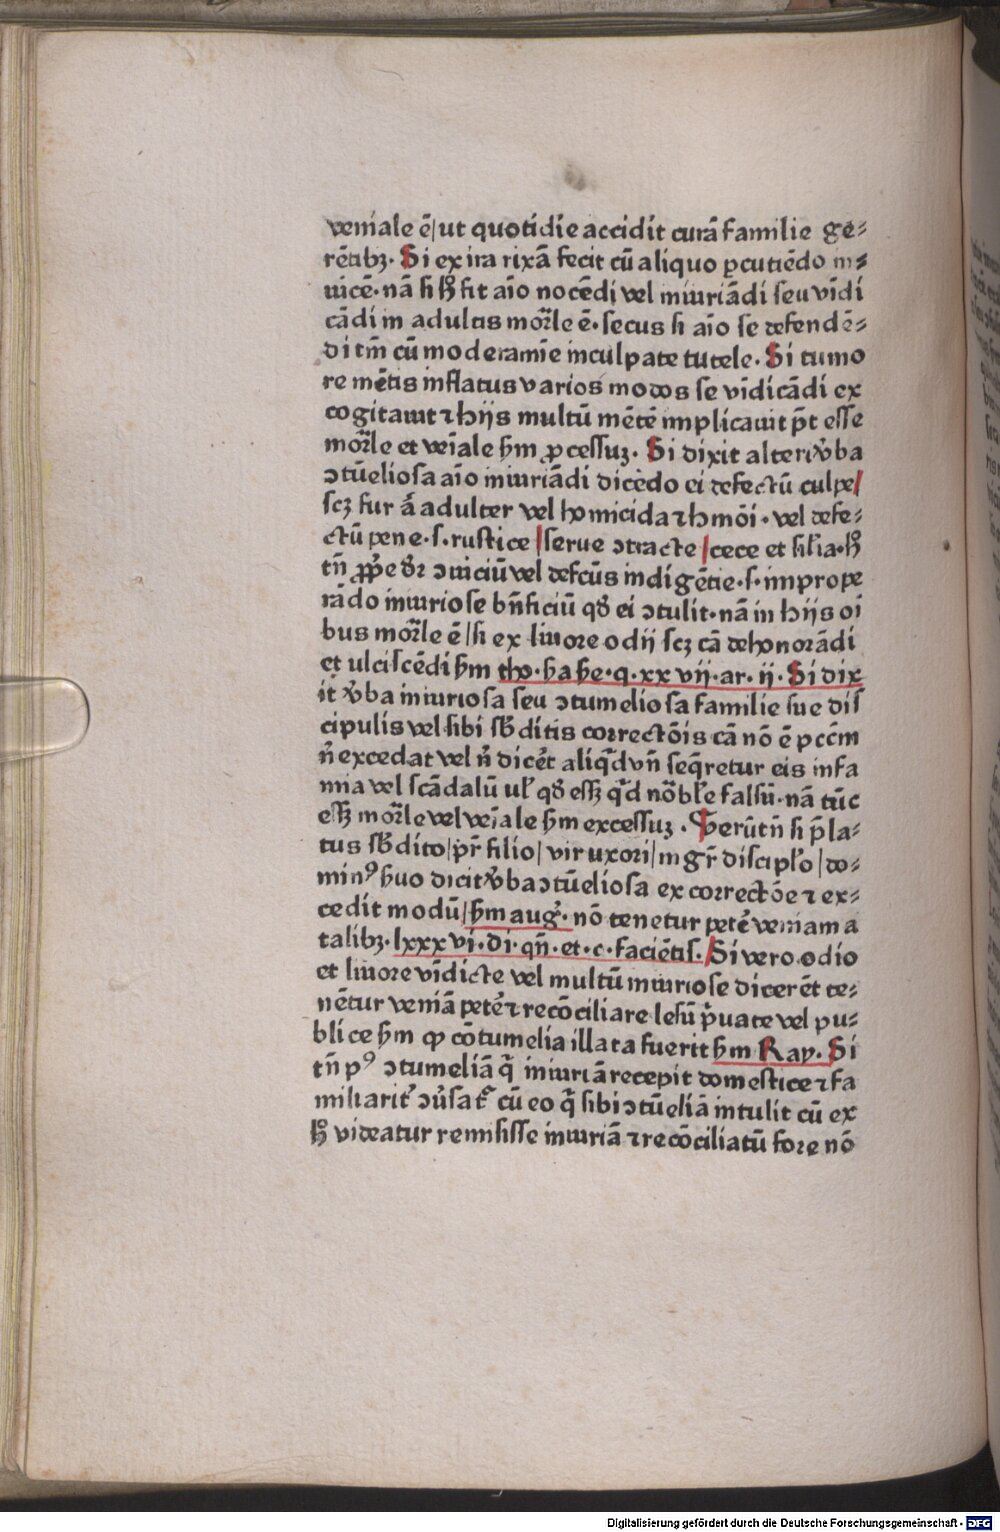 veniale ē/ut quotidie accidit curā familie ge⸗
rētibꝫ· Si ex ira rixā fecit cū aliquo ꝑcutiēdo in⸗
uicē· nā si hͦ fit aīo nocēdi vel iniuriādi seu vīdi
cādi in adultis mor̄le ē· secus si aīo se defendē⸗
di tm̄ cū moderamīe inculpate tutele· Si tumo
re mētis inflatus varios modos se vīdicādi ex
cogitauit ⁊ hijs multū mētē implicauit pt̄ esse
mor̄le et veīale ẜm ꝓcessuꝫ· Si dixit alteri v̓ba
ↄtūeliosa aīo iniuriādi dicēdo ei defectū culpe/
scꝫ fur ā adulter vel homicida ⁊ hmōi· vel defe⸗
ctū pene·s·rustice/serue ↄtracte/cece et sil̄ia·hͦ
tn̄ ꝓpe dr̄ ↄuiciū vel defcūs indigētie·s·imprope
rādo iniuriose bn̄ficiū qd̓ ei ↄtulit·nā in hijs oī
bus mor̄le ē/si ex liuore odij scꝫ cā dehonorādi
et ulciscēdi ẜm tho·ẜa ẜe·q·xxvij·ar·ij·Si dix
it v̓ba iniuriosa seu ↄtumeliosa familie sue dis
cipulis vel sibi sb̓ditis correctōis cā nō ē pccm̄
n̄ excedat vel n̄ dicēt aliqd̄ vn̄ seq̄retur eis infa
mia vel scādalū ul̓ qd̓ essꝫ qd̄ nōbl̓e falsū·nā tūc
essꝫ mor̄le vel veīale ẜm excessuꝫ· Verūtn̄ si p̄la⸗
tus sb̓dito/pr̄ filio/vir uxori/mgr̄ discipl̓o/do⸗
minꝰ ẜuo dicit v̓ba ↄtūeliosa ex correctōe ⁊ ex⸗
cedit modū/ẜm aug̓· nō tenetur petē veniam a
talibꝫ·lxxxvi·di·qn̄·et·c·faciētis·/Si vero odio
et liuore vīdicte vel multū iniuriose dicerēt te⸗
nētur veniā petē ⁊ recōciliare lesū p̄uate vel pu⸗
blice ẜm ꝙ cōtumelia illata fuerit ẜm Ray· Si
tn̄ pꝰ ↄtumeliā q̄ iniuriā recepit domestice ⁊ fa
miliarit̓ ↄu̓sat̄ cū eo q̄ sibi ↄtūeliā intulit cū ex
hͦ videatur remisisse iniuriā ⁊ recōciliatū fore nō
Digitalisierung gefördert durch die Deutsche Forschungsgemeinschaft - DFG